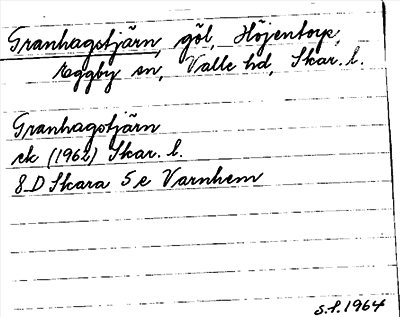 Granhagstjärn, göl, Höjentorp,
Eggby sn, Valle hd, Skar. l.
Granhagstjärn
ek (1962) Skar. l.
8 D Skara 5 e Varnhem
S.F. 1964